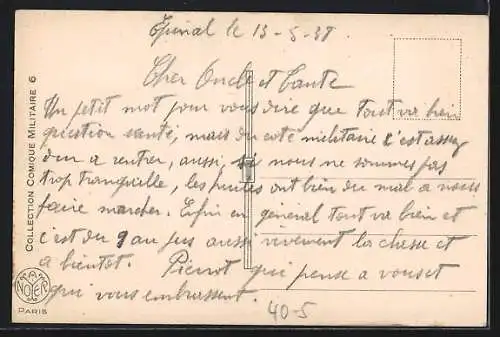 Epinal le 13-5-38
Cher Oncle et Tante
Un petit mot pour vous dire que tout va bien
question santé, mais du coté militaire c'est assez
dur a rentrer, aussi, si nous ne sommes pas
trop tranquille, les ont bien du mal a nous
faire marcher. Enfin en général tout va bien et
c'est du 9 au jus aussi vivement la classe et
a bientot. Pierrot qui pense a vous et
qui vous embrassent.
40-5
COLLECTION COMIQUE MILITAIRE 6
NOYER
PARIS